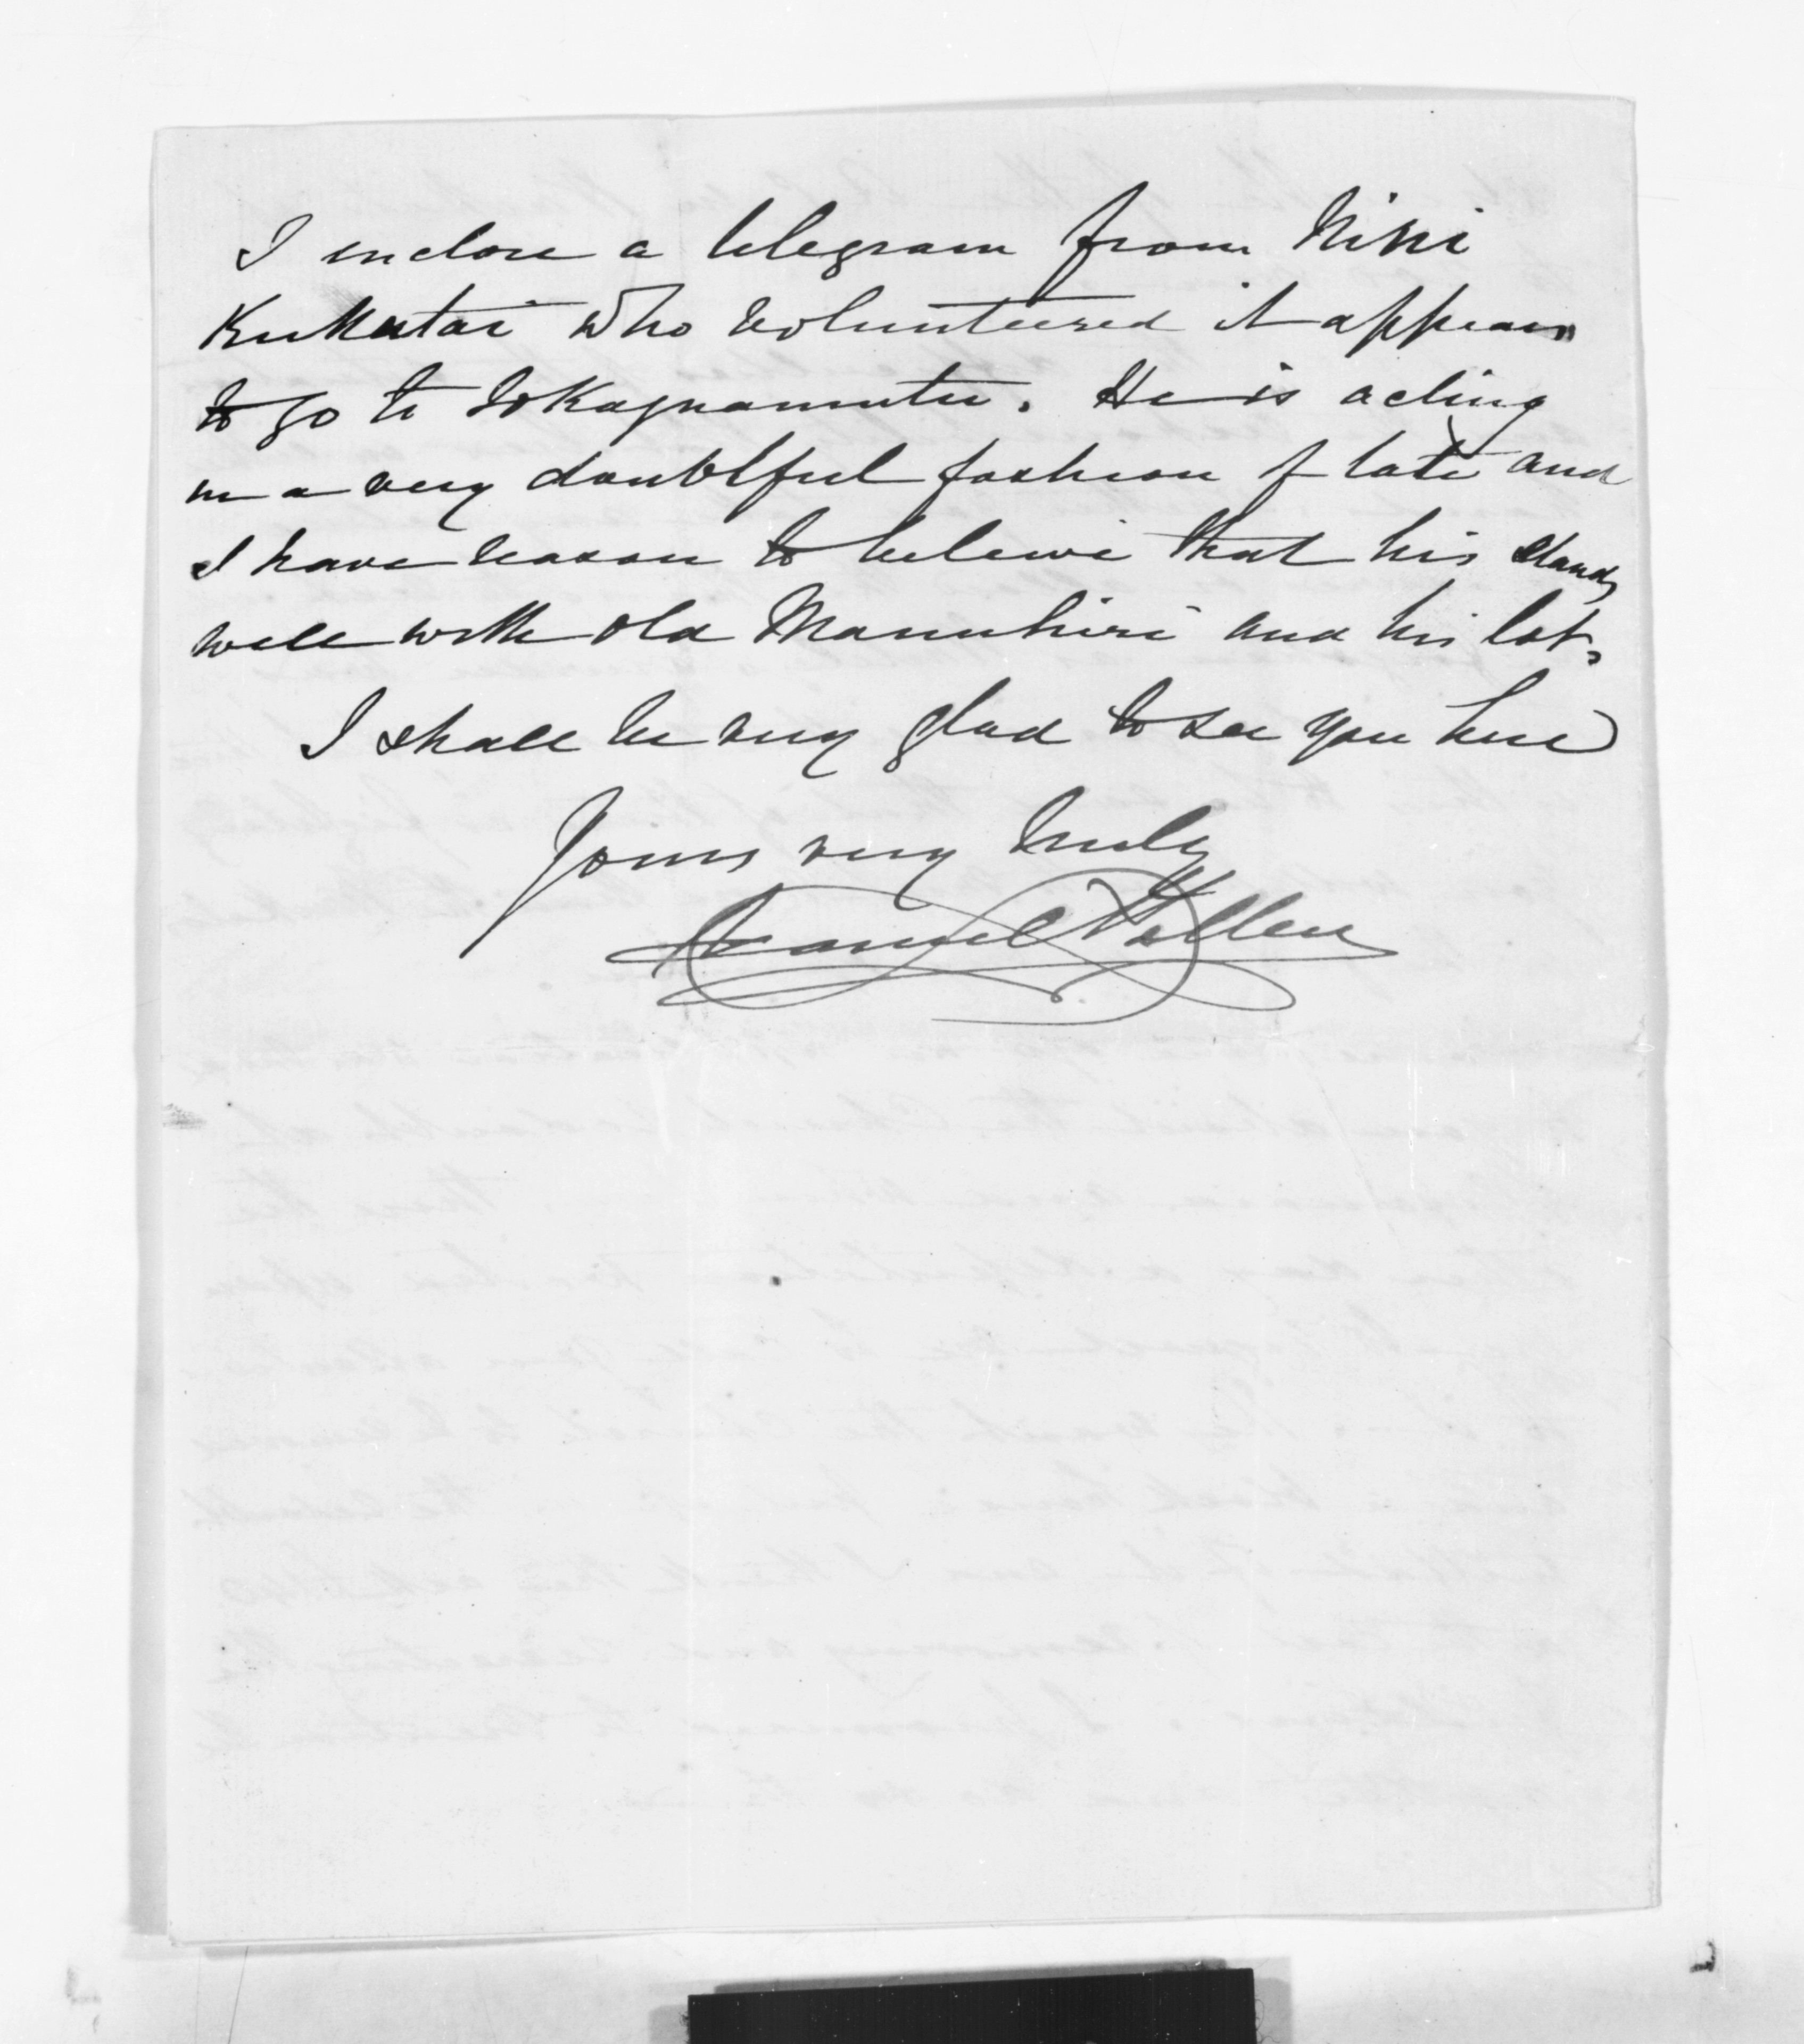 I enclose a telegram from Niki
Kukutai who volunteered it appears
to go to Tokangamutu. He is acting
in a very doubtful fashion of late and
I have reason to believe that his stands
well with old Manuhiri and his lot.
I shall be very glad to see you here
Yours very truly
Daniel Pollen